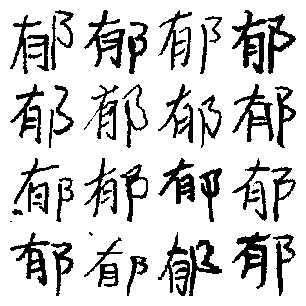 郁郁郁郁
郁郁郁郁
郁郁郁郁
郁郁郁郁